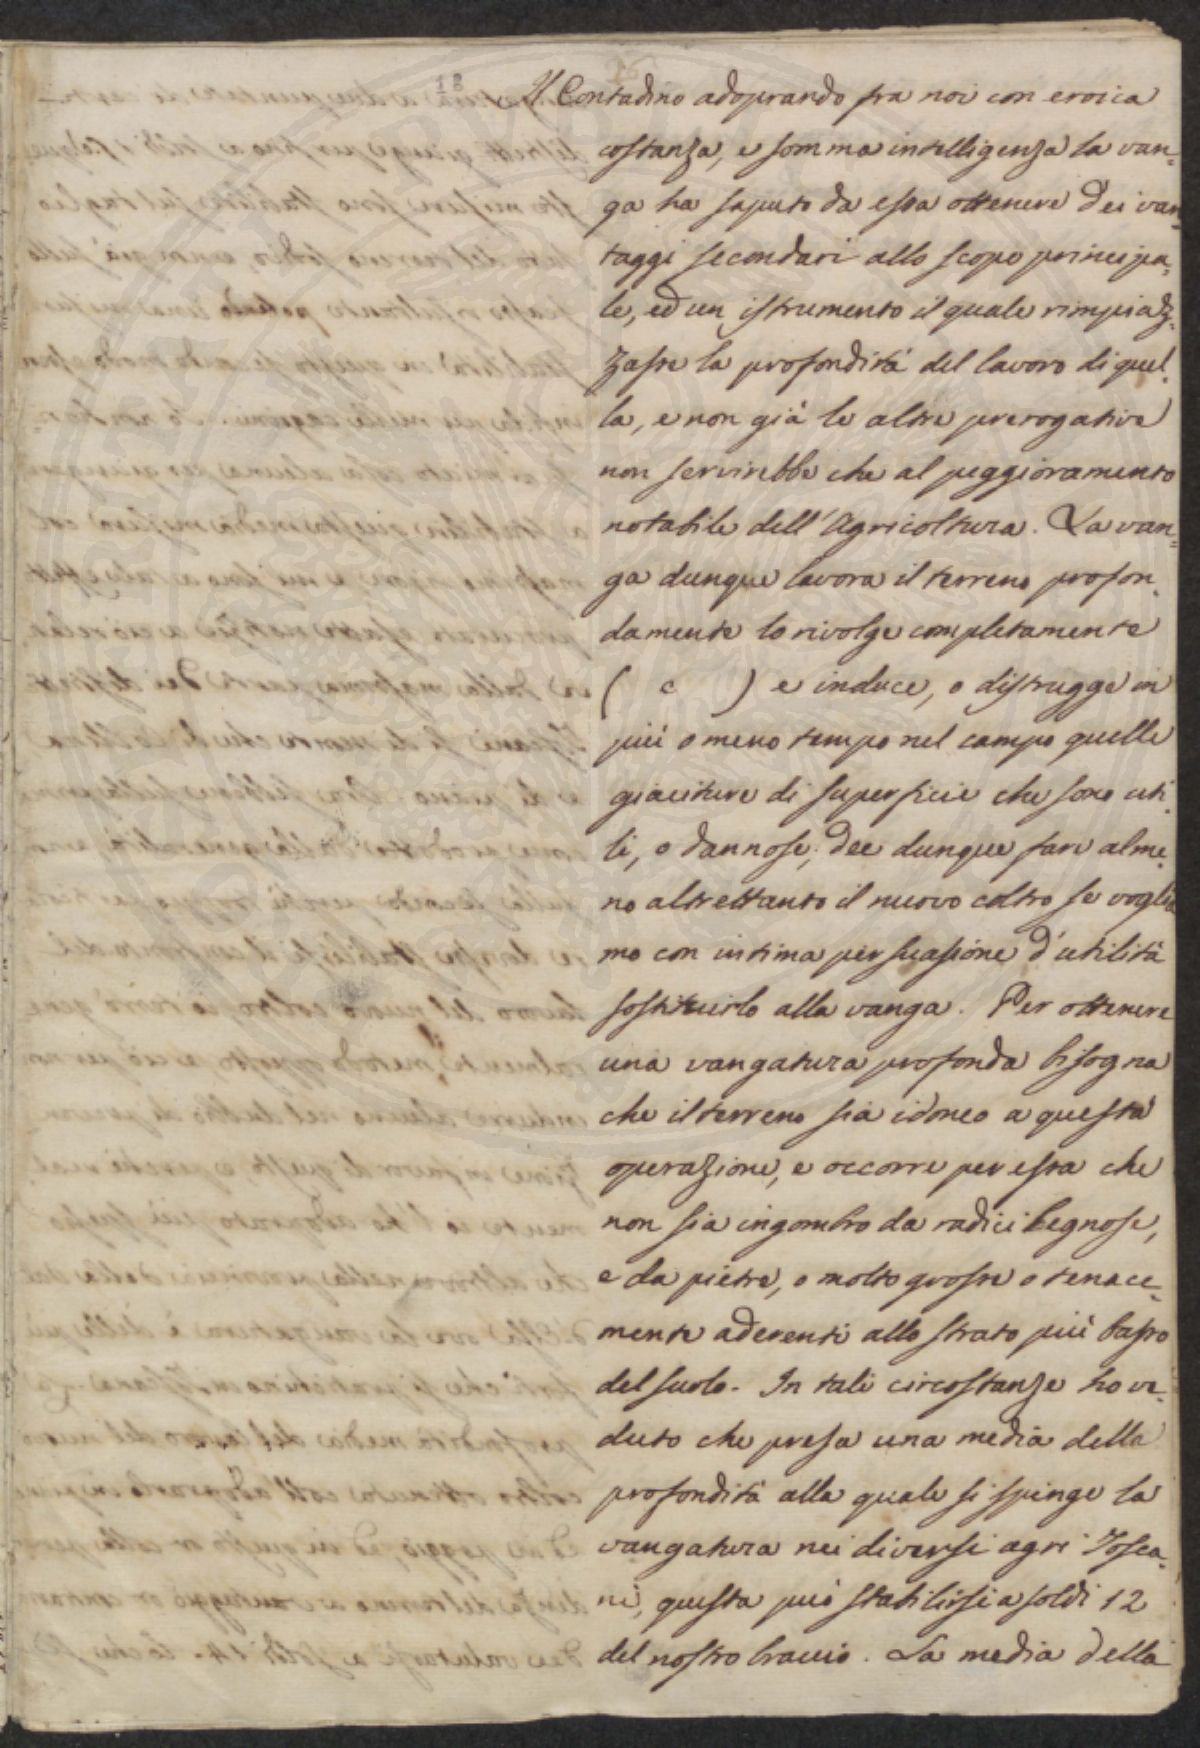 18
Il Contadino adoprando fra noi con eroica
costanza, e somma intelligenza la van=
ga ha saputo da essa ottenere dei van=
taggi secondari allo scopo principa=
le, ed un istrumento il quale rimpiaz=
zasse la profondità del lavoro di quel=
la, e non già le altre prerogative
non servirebbe che al peggioramento
notabile dell'Agricoltura. La van=
ga dunque lavora il terreno profon=
damente lo rivolge completamente
( c ) e induce, o distrugge in
più o meno tempo nel campo quelle
giaciture di superficie che sono uti=
li, o dannose; dee dunque fare alme=
no altrettanto il nuovo coltro se voglia
mo con intima persuasione d'utilità
sostituirlo alla vanga. Per ottenere
una vangatura profonda bisogna
che il terreno sia idoneo a questa
operazione, e occorre per essa che
non sia ingombro da radici legnose,
e da pietre, o molto grosse o tenace=
mente aderenti allo strato più basso
del suolo. In tali circostanze ho ve=
duto che presa una media della
profondità alla quale si spinge la
vangatura nei diversi agri Tosca=
ni, questa può stabilirsi a soldi 12
del nostro braccio. La media della